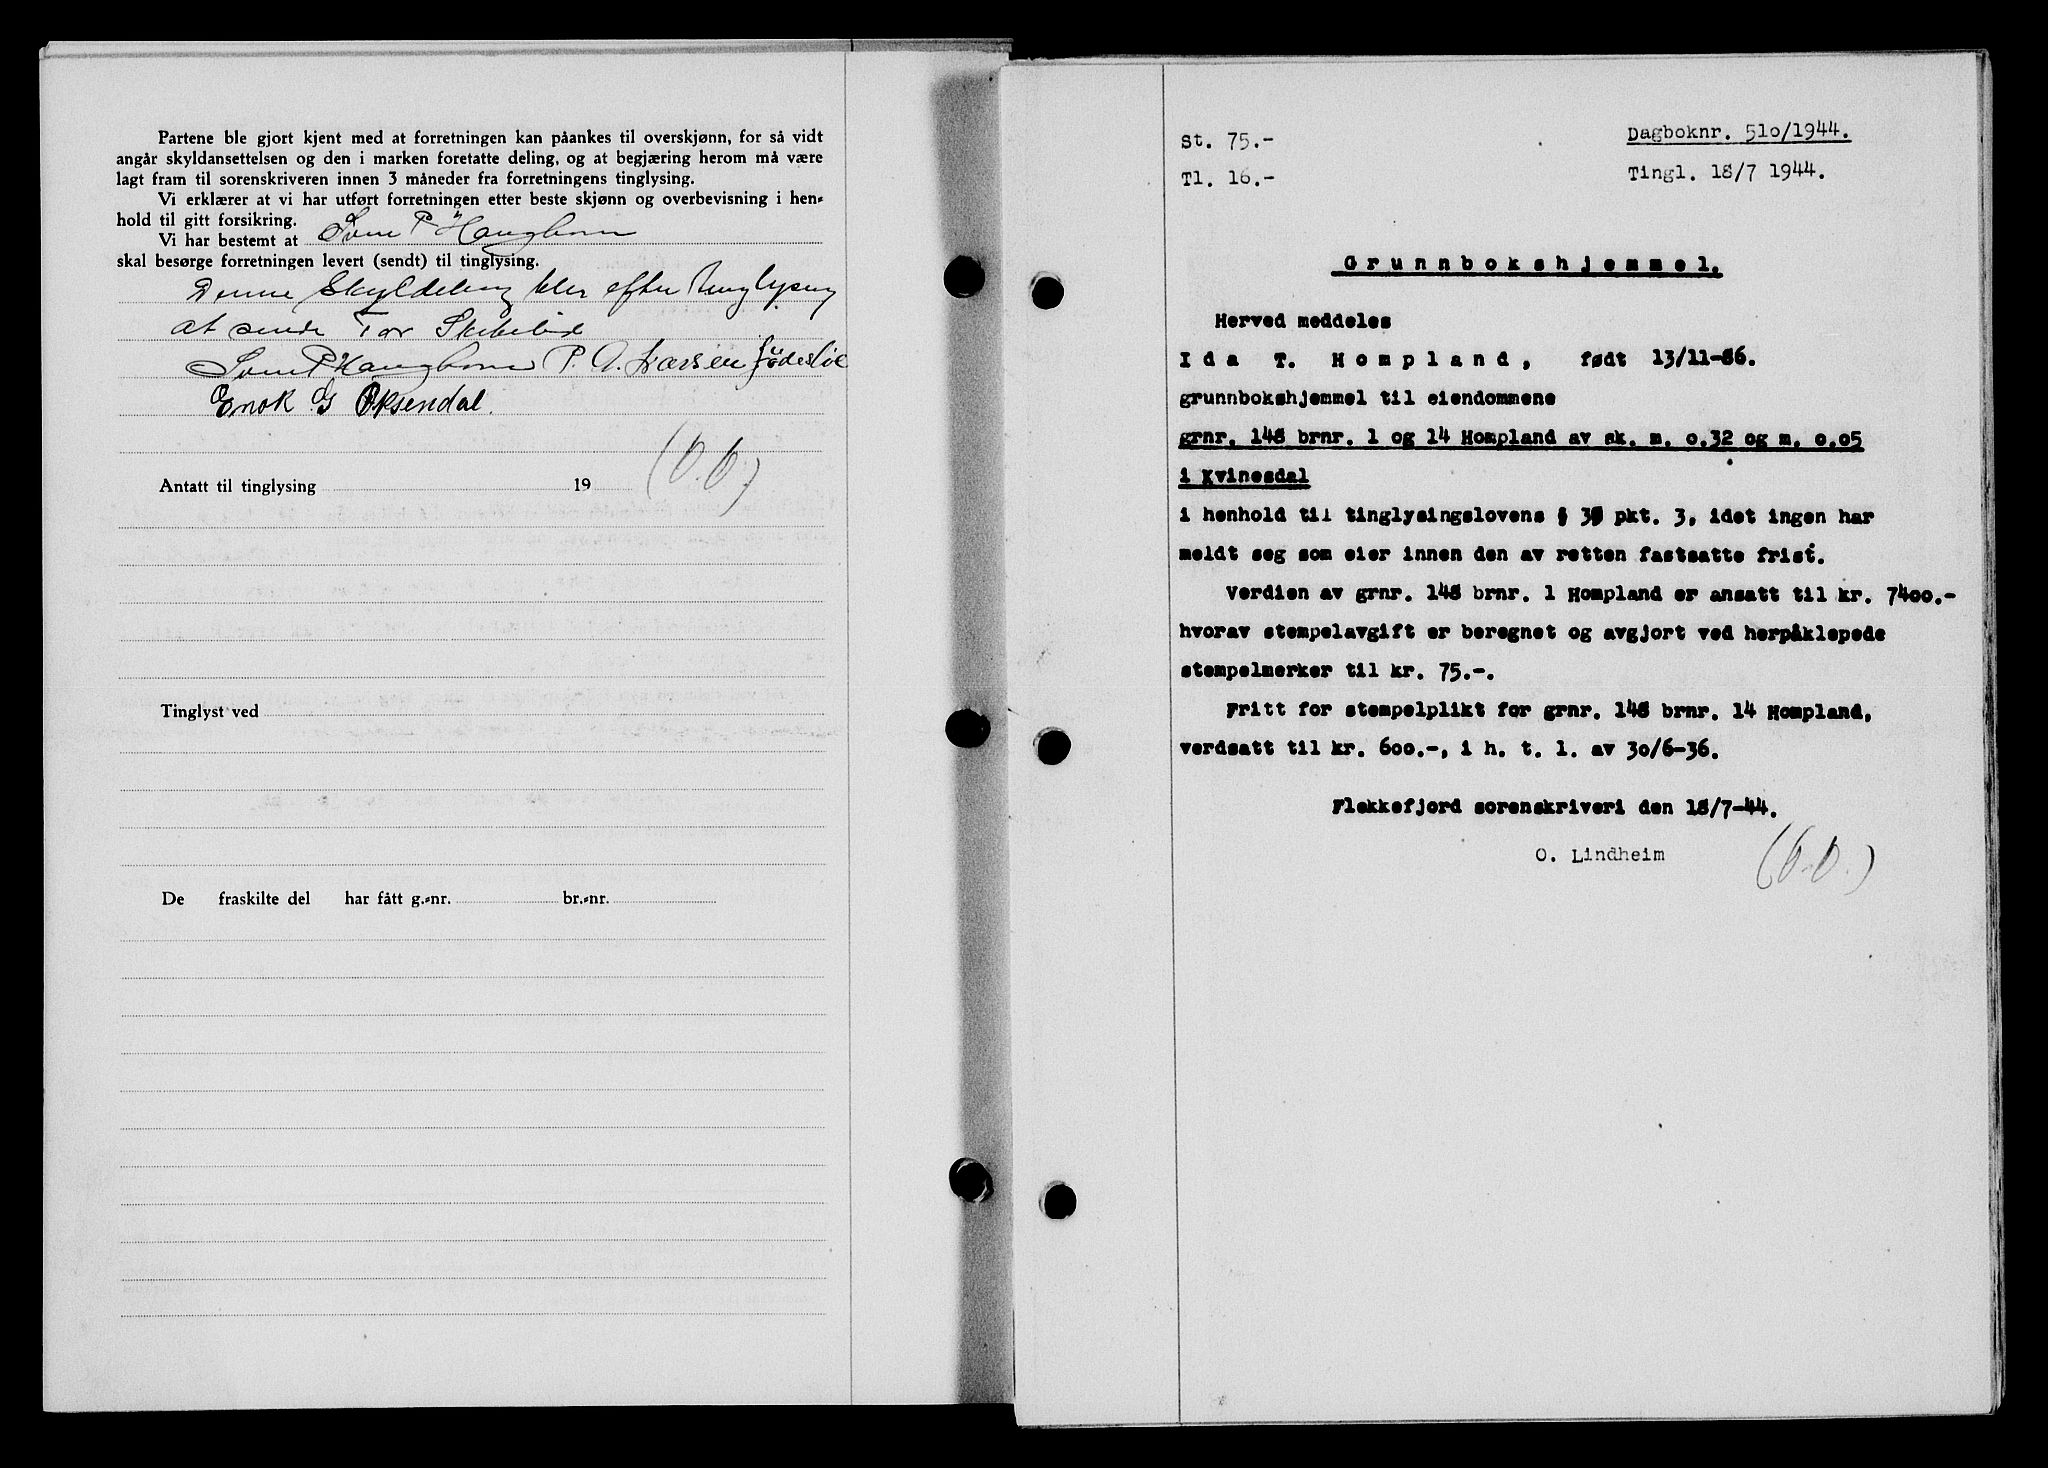 Partene ble gjort kjent med at forretningen kan påankes til overskjønn, for så vidt
angår skyldansettelsen og den i marken foretatte deling, og at begjæring herom må være
lagt fram til sorenskriveren innen 3 måneder fra forretningens tinglysing.
Vi erklærer at vi har utført forretningen etter beste skjønn og overbevisning i hen-
hold til gitt forsikring.
Vi har bestemt at Sven P Haughom
skal besørge forretningen levert (sendt) til tinglysing.
Denne Skyldeling blir efter tinglysing
at sende Tor
Sven P Haughom P. A. Larsen
Enok G Øksendal.
Antatt til tinglysing 19
Tinglyst ved
De fraskilte del har fått g.-nr. br.-nr.
St. 75.-
Tl. 16.-
Dagboknr. 510/1944.
Tingl. 18/7 1944.
Grunnbokshjemmel.
Herved meddeles
Ida T. Hompland, født 13/11-86.
grunnbokshjemmel til eiendommene
grnr. 148 brnr. 1 og 14 Hompland av sk. m. 0.32 og m. 0.05
i Kvinesdal
i henhold til tinglysingslovens § 38 pkt. 3, idet ingen har
meldt seg som eier innen den av retten fastsatte frist.
Verdien av grnr. 148 brnr. 1 Hompland er ansatt til kr. 7400.-
hvorav stempelavgift er beregnet og avgjort ved herpåklepede
stempelmerker til kr. 75.-.
Fritt for stempelplikt for grnr. 148 brnr. 14 Hompland,
verdsatt til kr. 600.-, i h. t. l. av 30/6-36.
Flekkefjord sorenskriveri den 18/7-44.
O. Lindheim